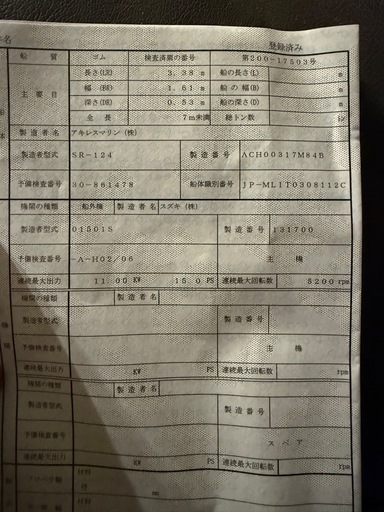 登録済み
船質 ゴム 検査済票の番号 第200-17503号
主要目 長さ(LR) 3.38 m 船の長さ(L) m
幅(BR) 1.61 m 船の幅(B) m
深さ(DR) 0.53 m 船の深さ(D) m
全長 7m未満 総トン数
製造者名 アキレスマリン(株)
製造者型式 SR-124 製造番号 ACH00317M84B
予備検査番号 30-861478 船体識別番号 JP-MLIT0308112C
機関の種類 船外機 製造者名 スズキ(株)
製造者型式 01501S 製造番号 131700
予備検査番号 -A-H02/06 主機
連続最大出力 11.00 KW 15.0 PS 連続最大回転数 5200 rpm
機関の種類 製造者名
製造者型式 製造番号
予備検査番号 主機
連続最大出力 KW PS 連続最大回転数 rpm
機関の種類 製造者名
製造者型式 製造番号
予備検査番号 スペア
連続最大出力 KW PS 連続最大回転数 rpm
材料